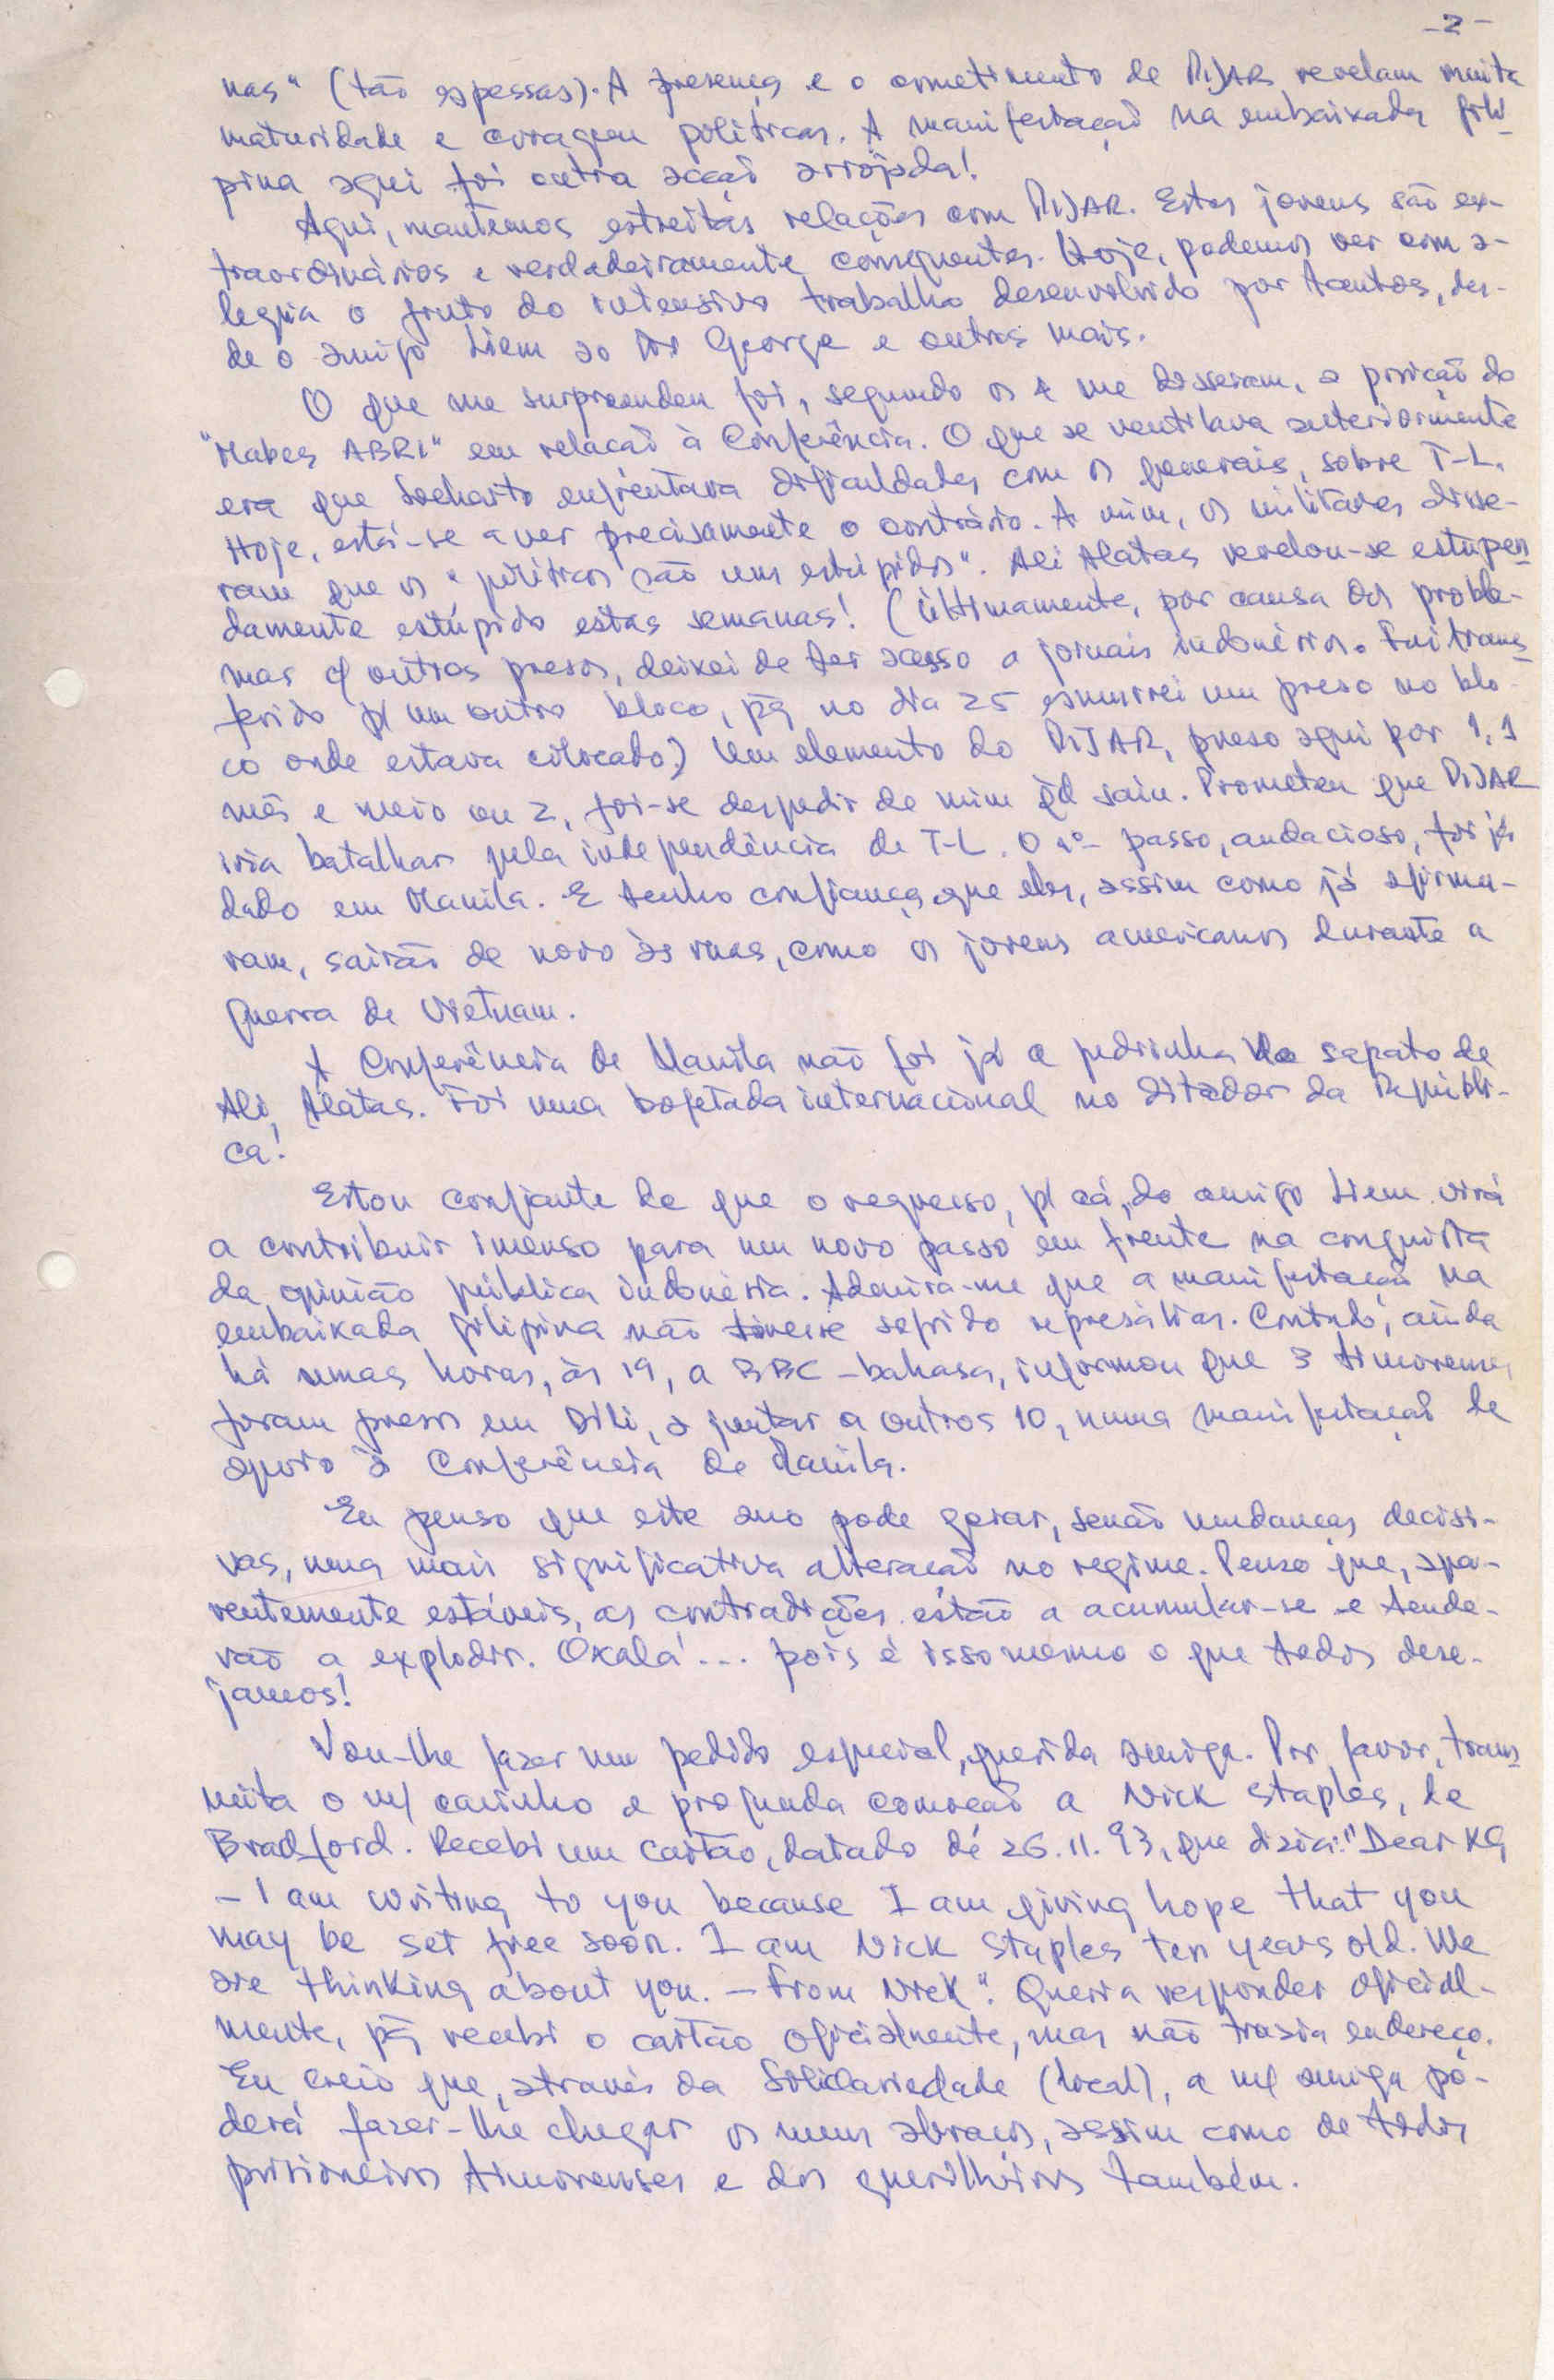 -2-
nas" (tão espessas). A presença e o cometimento de PIJAR revelam muita
maturidade e coragem políticas. A manifestação na embaixada fili-
pina aqui foi outra acção arrojada!
Aqui, mantemos estreitas relações com PIJAR. Estes jovens são ex-
traordinários e verdadeiramente consequentes. Hoje, podemos ver com a-
legria o fruto do intensivo trabalho desenvolvido por tantos, des-
de o amigo Liem ao Dr George e outros mais.
O que me surpreendeu foi, segundo os 4 me disseram, a posição do
"Mabes ABRI" em relação à Conferência. O que se ventilava anteriormente
era que Soeharto enfrentava dificuldades com os generais, sobre T-L.
Hoje, está-se a ver precisamente o contrário. A mim, os militares disse-
ram que os "políticos são uns estúpidos". Ali Alatas revelou-se estupen
damente estúpido estas semanas! (Ultimamente, por causa dos proble-
mas c/ outros presos, deixei de ter acesso a jornais indonésios. Fui trans
ferido p/ um outro bloco, pq no dia 25 esmurrei um preso no blo-
co onde estava colocado) Um elemento do PIJAR, preso aqui por 1, 1
mês e meio ou 2, foi-se despedir de mim qd saiu. Prometeu que PIJAR
iria batalhar pela independência de T-L. O 1º passo, audacioso, foi já
dado em Manila. E tenho confiança que eles, assim como já afirma-
ram, sairão de novo às ruas, como os jovens americanos durante a
guerra de Vietnam.
A Conferência de Manila não foi já a pedrinha no sapato de
Ali Alatas. Foi uma bofetada internacional no ditador da Repúbli-
ca!
Estou confiante de que o regresso, p/ cá, do amigo Liem virá
a contribuir imenso para um novo passo em frente na conquista
da opinião pública indonésia. Admira-me que a manifestação na
embaixada filipina não tivesse sofrido represálias. Contudo, ainda
há umas horas, às 19, a BBC-bahasa, informou que 3 timorenses
foram presos em Dili, a juntar a outros 10, numa manifestação de
apoio à Conferência de Manila.
Eu penso que este ano pode gerar, senão mudanças decisi-
vas, uma mais significativa alteração no regime. Penso que, apa-
rentemente estáveis, as contradições estão a acumular-se e tende-
rão a explodir. Oxalá!... pois é isso mesmo o que todos dese-
jamos!
Vou-lhe fazer um pedido especial, querida amiga. Por favor, trans
mita o m/ carinho e profunda comoção a Nick Staples, de
Bradford. Recebi um cartão, datado de 26.11.93, que dizia: "Dear XG
- I am writing to you because I am giving hope that you
may be set free soon. I am Nick Staples ten years old. We
are thinking about you. - From Nick". Queria responder oficial-
mente, pq recebi o cartão oficialmente, mas não trazia endereço.
Eu creio que, através da Solidariedade (local), a m/ amiga po-
derá fazer-lhe chegar os meus abraços, assim como de todos
prisioneiros timorenses e dos guerilheiros também.